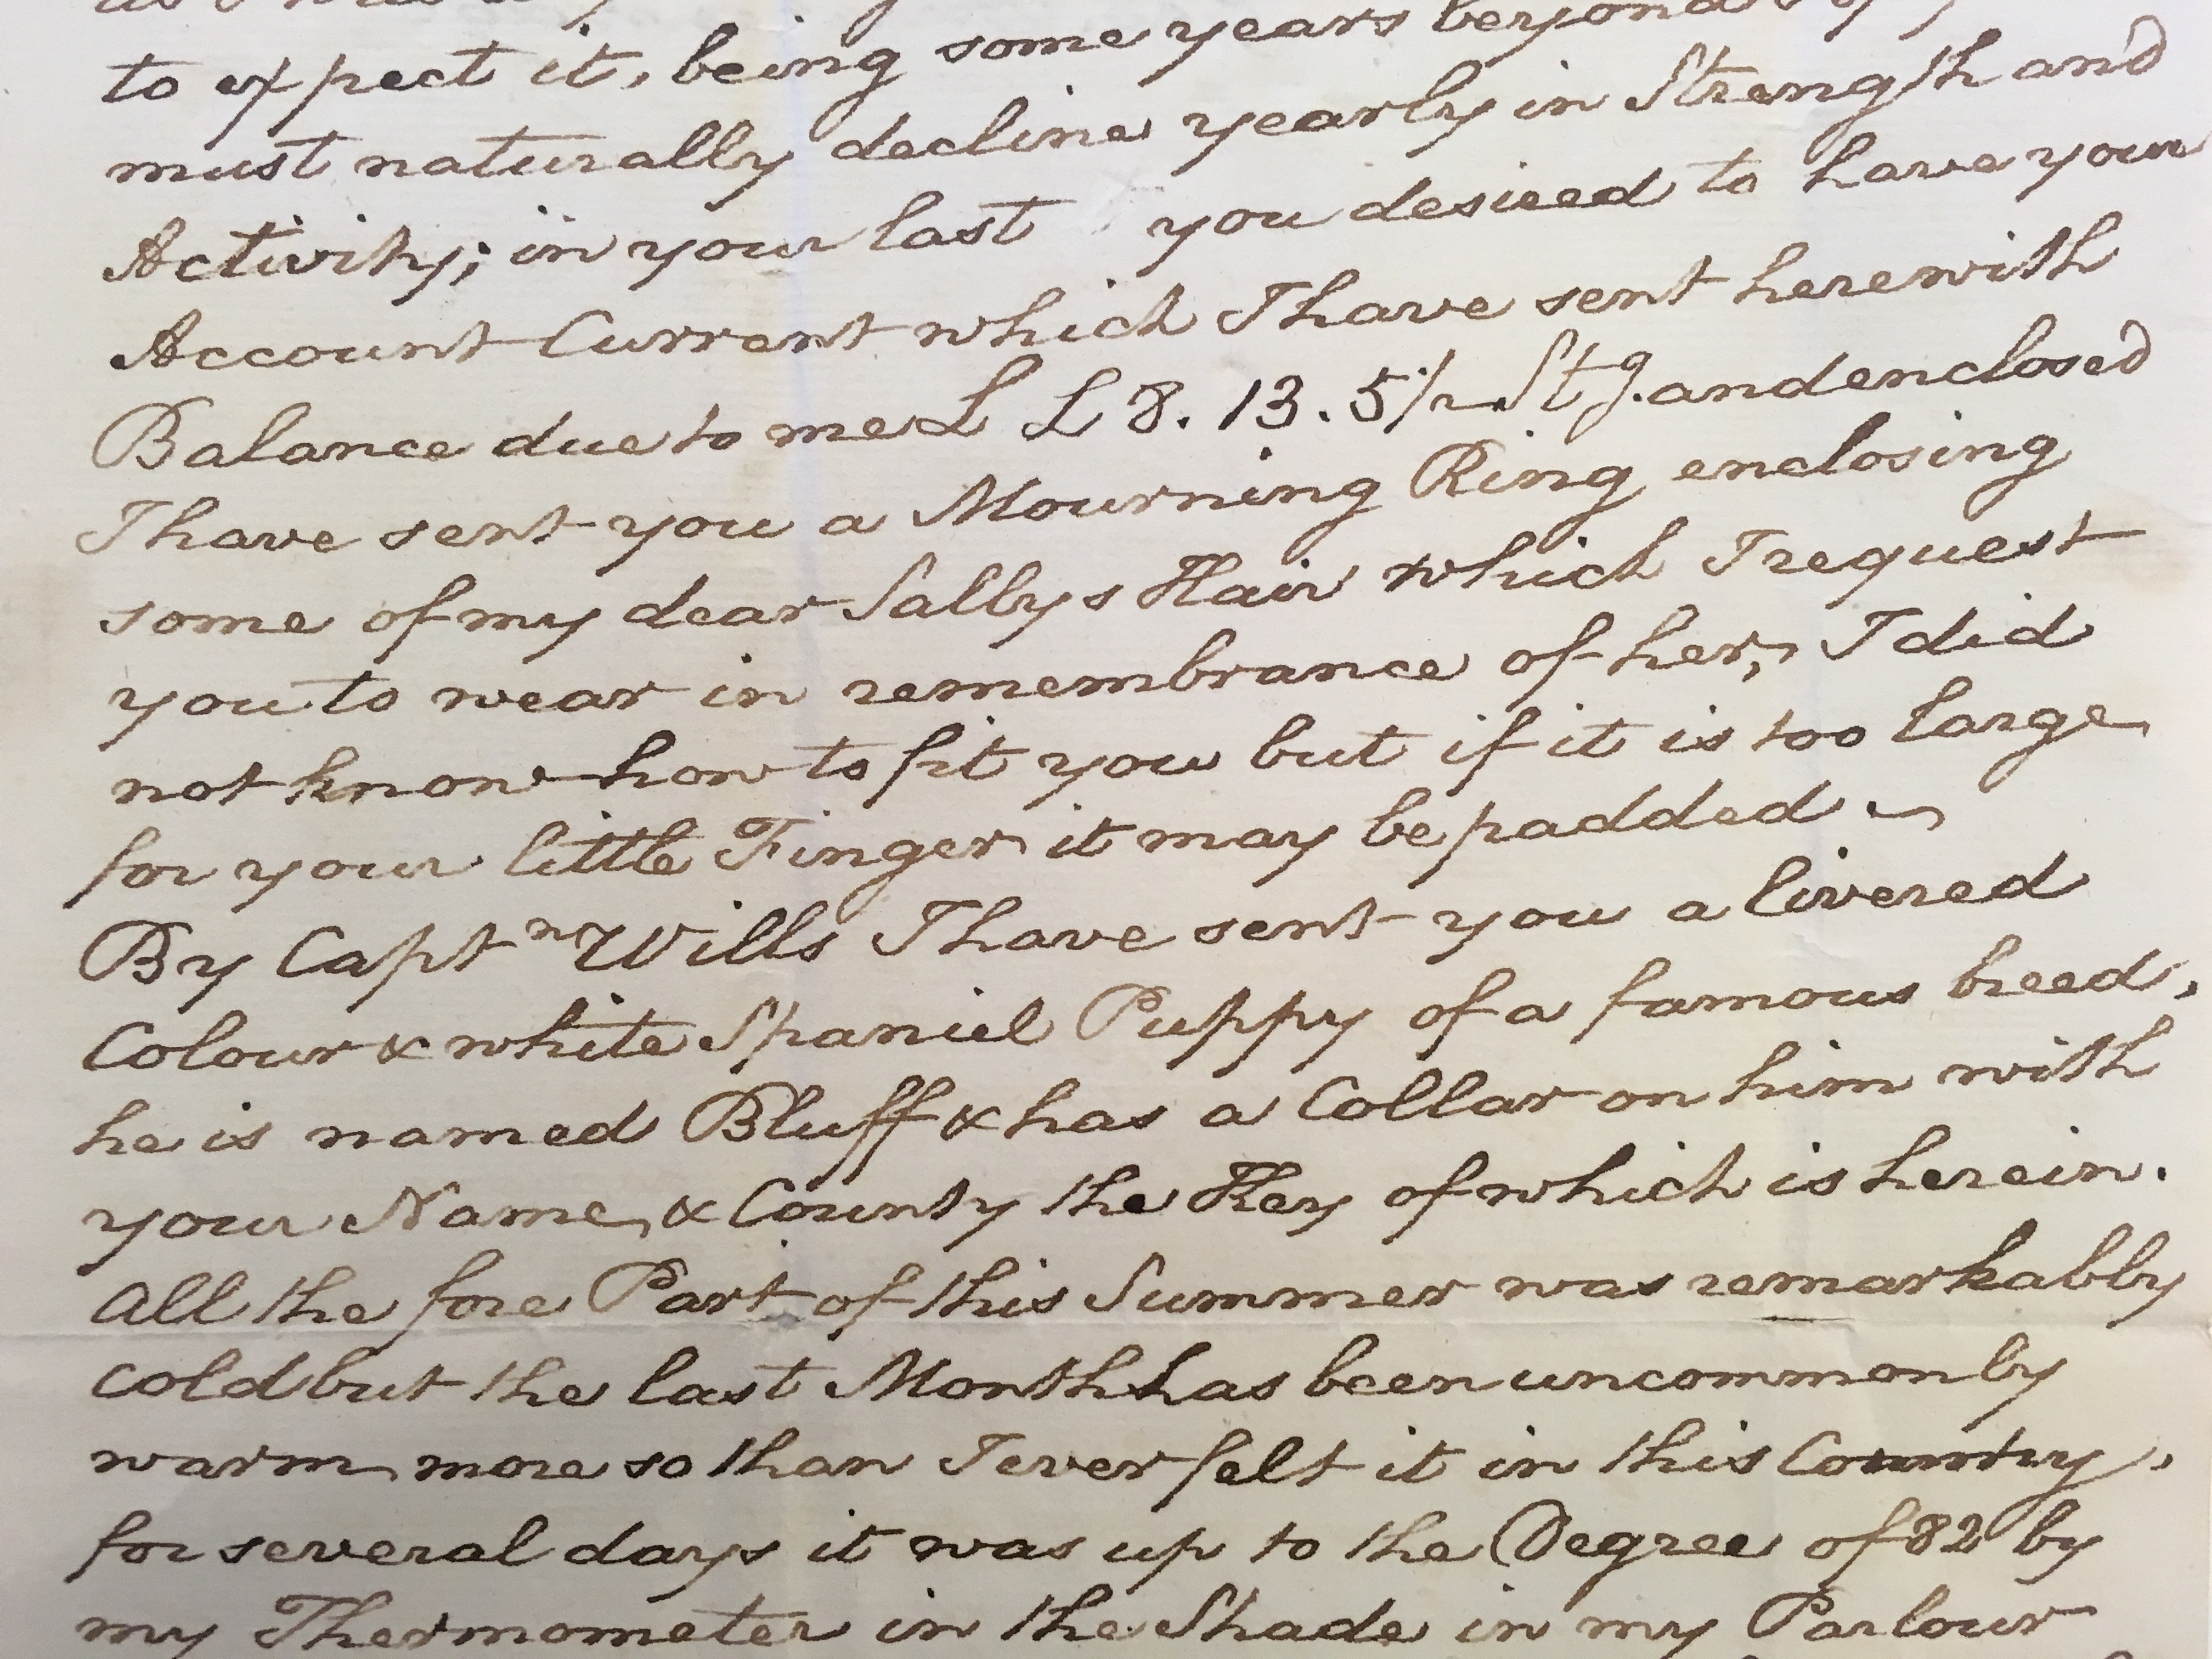 to expect it, being some years beyond
must naturally decline yearly in Strength and
Activity; in your last you desired to have your
Account Current which I have sent herewith
Balance due to me £ £ 8. 13. 5½ Stg. and enclosed
I have sent you a Mourning Ring enclosing
some of my dear Sallys Hair which I request
you to wear in remembrance of her, I did
not know how to fit you but if it is too large
for your little Finger it may be padded
By Captn Wills I have sent you a livered
Colour & white Spaniel Puppy of a famous breed,
he is named Bluff & has a Collar on him with
your Name, & County the Key of which is herein.
All the fore Part of this Summer was remarkably
cold but the last Month has been uncommonly
warm more so than I ever felt it in this Country,
for several days it was up to the Degree of 82 by
my Thermometer in the Shade in my Parlour